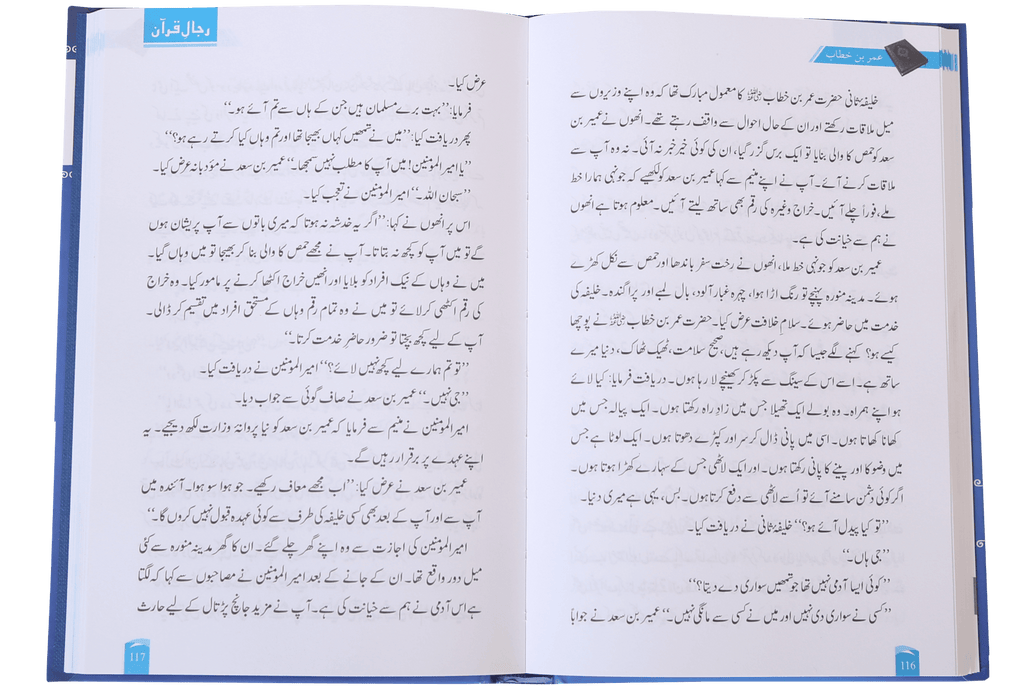 عمر بن خطاب
خلیفۂ ثانی حضرت عمر بن خطاب رضی اللہ عنہ کا معمول مبارک تھا کہ وہ اپنے وزیروں سے
میل ملاقات رکھتے اور ان کے حال احوال سے واقف رہتے تھے۔ انھوں نے عمیر بن
سعد کو حمص کا والی بنایا تو ایک برس گزر گیا، ان کی کوئی خیر خبر نہ آئی۔ نہ وہ آپ سے
ملاقات کرنے آئے۔ آپ نے اپنے منیم سے کہا عمیر بن سعد کو لکھیے کہ جونہی ہمارا خط
ملے، فوراً چلے آئیں۔ خراج وغیرہ کی رقم بھی ساتھ لیتے آئیں۔ معلوم ہوتا ہے انھوں
نے ہم سے خیانت کی ہے۔
عمیر بن سعد کو جونہی خط ملا، انھوں نے رخت سفر باندھا اور حمص سے نکل کھڑے
ہوئے۔ مدینہ منورہ پہنچے تو رنگ اڑا ہوا، چہرہ غبار آلود، بال لمبے اور پراگندہ۔ خلیفہ کی
خدمت میں حاضر ہوئے۔ سلام خلافت عرض کیا۔ حضرت عمر بن خطاب رضی اللہ عنہ نے پوچھا
کیسے ہو؟ کہنے لگے جیسا کہ آپ دیکھ رہے ہیں، صحیح سلامت، ٹھیک ٹھاک، دنیا میرے
ساتھ ہے۔ اسے اس کے سینگ سے پکڑ کر کھینچے لا رہا ہوں۔ دریافت فرمایا: کیا لائے
ہو اپنے ہمراہ۔ وہ بولے ایک تھیلا جس میں زاد راہ رکھتا ہوں۔ ایک پیالہ جس میں
کھانا کھاتا ہوں۔ اسی میں پانی ڈال کر سر اور کپڑے دھوتا ہوں۔ ایک لوٹا ہے جس
میں وضو کا اور پینے کا پانی رکھتا ہوں۔ اور ایک لاٹھی جس کے سہارے کھڑا ہوتا ہوں۔
اگر کوئی دشمن سامنے آئے تو اُسے لاٹھی سے دفع کرتا ہوں۔ بس، یہی ہے میری دنیا۔
’’تو کیا پیدل آئے ہو؟‘‘ خلیفۂ ثانی نے دریافت کیا۔
’’جی ہاں۔‘‘
’’کوئی ایسا آدمی نہیں تھا جو تمھیں سواری دے دیتا؟‘‘
’’کسی نے سواری دی نہیں اور میں نے کسی سے مانگی نہیں۔‘‘ عمیر بن سعد نے جواباً
116
رجال قرآن
عرض کیا۔
فرمایا: ’’بہت برے مسلمان ہیں جن کے ہاں سے تم آئے ہو۔‘‘
پھر دریافت کیا: ’’میں نے تمھیں کہاں بھیجا تھا اور تم وہاں کیا کرتے رہے ہو؟‘‘
’’یا امیر المومنین! میں آپ کا مطلب نہیں سمجھا۔‘‘ عمیر بن سعد نے مؤدبانہ عرض کیا۔
’’سبحان اللہ۔‘‘ امیر المومنین نے تعجب کیا۔
اس پر انھوں نے کہا: ’’اگر یہ خدشہ نہ ہوتا کہ میری باتوں سے آپ پریشان ہوں
گے تو میں آپ کو کچھ نہ بتاتا۔ آپ نے مجھے حمص کا والی بنا کر بھیجا تو میں وہاں گیا۔
میں نے وہاں کے نیک افراد کو بلایا اور انھیں خراج اکٹھا کرنے پر مامور کیا۔ وہ خراج
کی رقم اکٹھی کر لائے تو میں نے وہ تمام رقم وہاں کے مستحق افراد میں تقسیم کر ڈالی۔
آپ کے لیے کچھ بچتا تو ضرور حاضر خدمت کرتا۔‘‘
’’تو تم ہمارے لیے کچھ نہیں لائے؟‘‘ امیر المومنین نے دریافت کیا۔
’’جی نہیں۔‘‘ عمیر بن سعد نے صاف گوئی سے جواب دیا۔
امیر المومنین نے منیم سے فرمایا کہ عمیر بن سعد کو نیا پروانۂ وزارت لکھ دیجیے۔ یہ
اپنے عہدے پر برقرار رہیں گے۔
عمیر بن سعد نے عرض کیا: ’’اب مجھے معاف رکھیے۔ جو ہوا سو ہوا۔ آئندہ میں
آپ سے اور آپ کے بعد بھی کسی خلیفہ کی طرف سے کوئی عہدہ قبول نہیں کروں گا۔‘‘
امیر المومنین کی اجازت سے وہ اپنے گھر چلے گئے۔ ان کا گھر مدینہ منورہ سے کئی
میل دور واقع تھا۔ ان کے جانے کے بعد امیر المومنین نے مصاحبوں سے کہا کہ لگتا
ہے اس آدمی نے ہم سے خیانت کی ہے۔ آپ نے مزید جانچ پڑتال کے لیے حارث
117